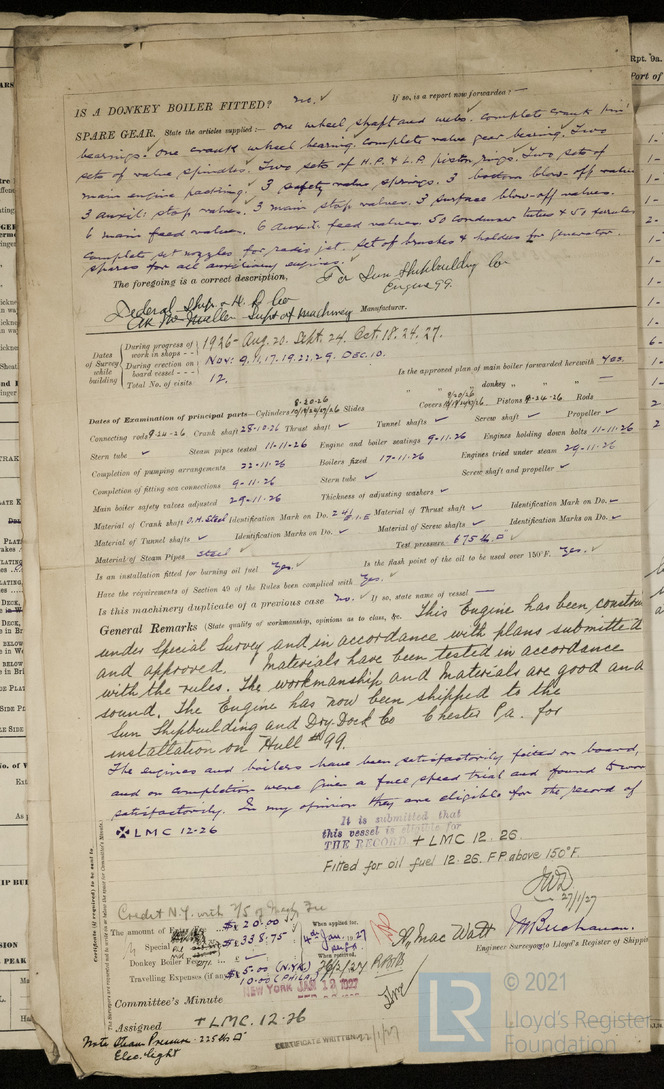 IS A DONKEY BOILER FITTED? no. ✓ If so, is a report now forwarded? —
SPARE GEAR. State the articles supplied:— One wheel shaft and webs. Complete crank pin
bearings. One crank wheel bearing. Complete valve gear bearing. Two
sets of valve spindles. Two sets of H.P. & L.P. piston rings. Two sets of
main engine packing. 3 safety valve springs. 3 bottom blow-off valves
3 auxil: stop valves. 3 main stop valves. 3 surface blow-off valves.
6 main feed valves. 6 auxil. feed valves. 50 condenser tubes & 50 ferrules
Complete set nozzles for radio jet. Set of brushes & holders for generator.
spares for all auxiliary engines. ✓
The foregoing is a correct description, For Sun Shipbuilding Co
Engine 99.
Federal Ship. & D. D. Co
Supt of Machinery Manufacturer.
Dates of Survey while building
During progress of work in shops - - 1926 - Aug. 20. Sept. 24. Oct. 18. 24. 27.
During erection on board vessel - - - Nov: 9. 11. 17. 19. 22. 29. DEC. 10.
Total No. of visits 12.
Is the approved plan of main boiler forwarded herewith Yes.
" " " donkey " " " —
Dates of Examination of principal parts—Cylinders 8-20-26 Slides Covers Pistons 9-24-26 Rods
Connecting rods 9-24-26 Crank shaft 28-10-26 Thrust shaft ✓ Tunnel shafts ✓ Screw shaft ✓ Propeller ✓
Stern tube ✓ Steam pipes tested 11-11-26 Engine and boiler seatings 9-11-26 Engines holding down bolts 11-11-26
Completion of pumping arrangements 22-11-26 Boilers fixed 17-11-26 Engines tried under steam 29-11-26
Completion of fitting sea connections 9-11-26 Stern tube ✓ Screw shaft and propeller ✓
Main boiler safety valves adjusted 29-11-26 Thickness of adjusting washers ✓
Material of Crank shaft O.H. Steel Identification Mark on Do. 241 E.I.E Material of Thrust shaft ✓ Identification Mark on Do. ✓
Material of Tunnel shafts ✓ Identification Marks on Do. ✓ Material of Screw shafts ✓ Identification Marks on Do. ✓
Material of Steam Pipes Steel ✓ Test pressure 675 lb. □" ✓
Is an installation fitted for burning oil fuel Yes. ✓ Is the flash point of the oil to be used over 150°F. Yes. ✓
Have the requirements of Section 49 of the Rules been complied with Yes. ✓
Is this machinery duplicate of a previous case no. ✓ If so, state name of vessel —
General Remarks (State quality of workmanship, opinions as to class, &c. This Engine has been constru
under Special Survey and in accordance with plans submitted
and approved. Materials have been tested in accordance
with the rules. The workmanship and materials are good and
sound. The Engine has now been shipped to the
Sun Shipbuilding and Dry Dock Co Chester Pa. for
installation on Hull #99.
The engines and boilers have been satisfactorily fitted on board,
and on completion were given a full speed trial and found to work
satisfactorily. In my opinion they are eligible for the record of
✠ LMC 12-26
It is submitted that
this vessel is eligible for
THE RECORD. + LMC 12. 26.
Fitted for oil fuel 12.26. F.P. above 150°F.
27/1/27
Certificate (if required) to be sent to
Credit N.Y. with 1/5 of Mach Fee
The amount of Fee ... $ 20.00 When applied for,
Special ... $ 338.75 4th Jan. 1927
Donkey Boiler Fee ... £ ✓ When received,
Travelling Expenses (if any) $ 5.00 (N.Y.K.) 26/2/27
10.00 (PHILA.)
A. Mac Watt J. M. Buchanan.
Engineer Surveyor to Lloyd's Register of Shippin
NEW YORK JAN 12 1927
Committee's Minute
Assigned + LMC. 12. 26
Note Steam Pressure. 225 lbs □"
Elec. light
CERTIFICATE WRITTEN
© 2021
Lloyd's Register
Foundation
LR
Rpt. 9a.
Port of